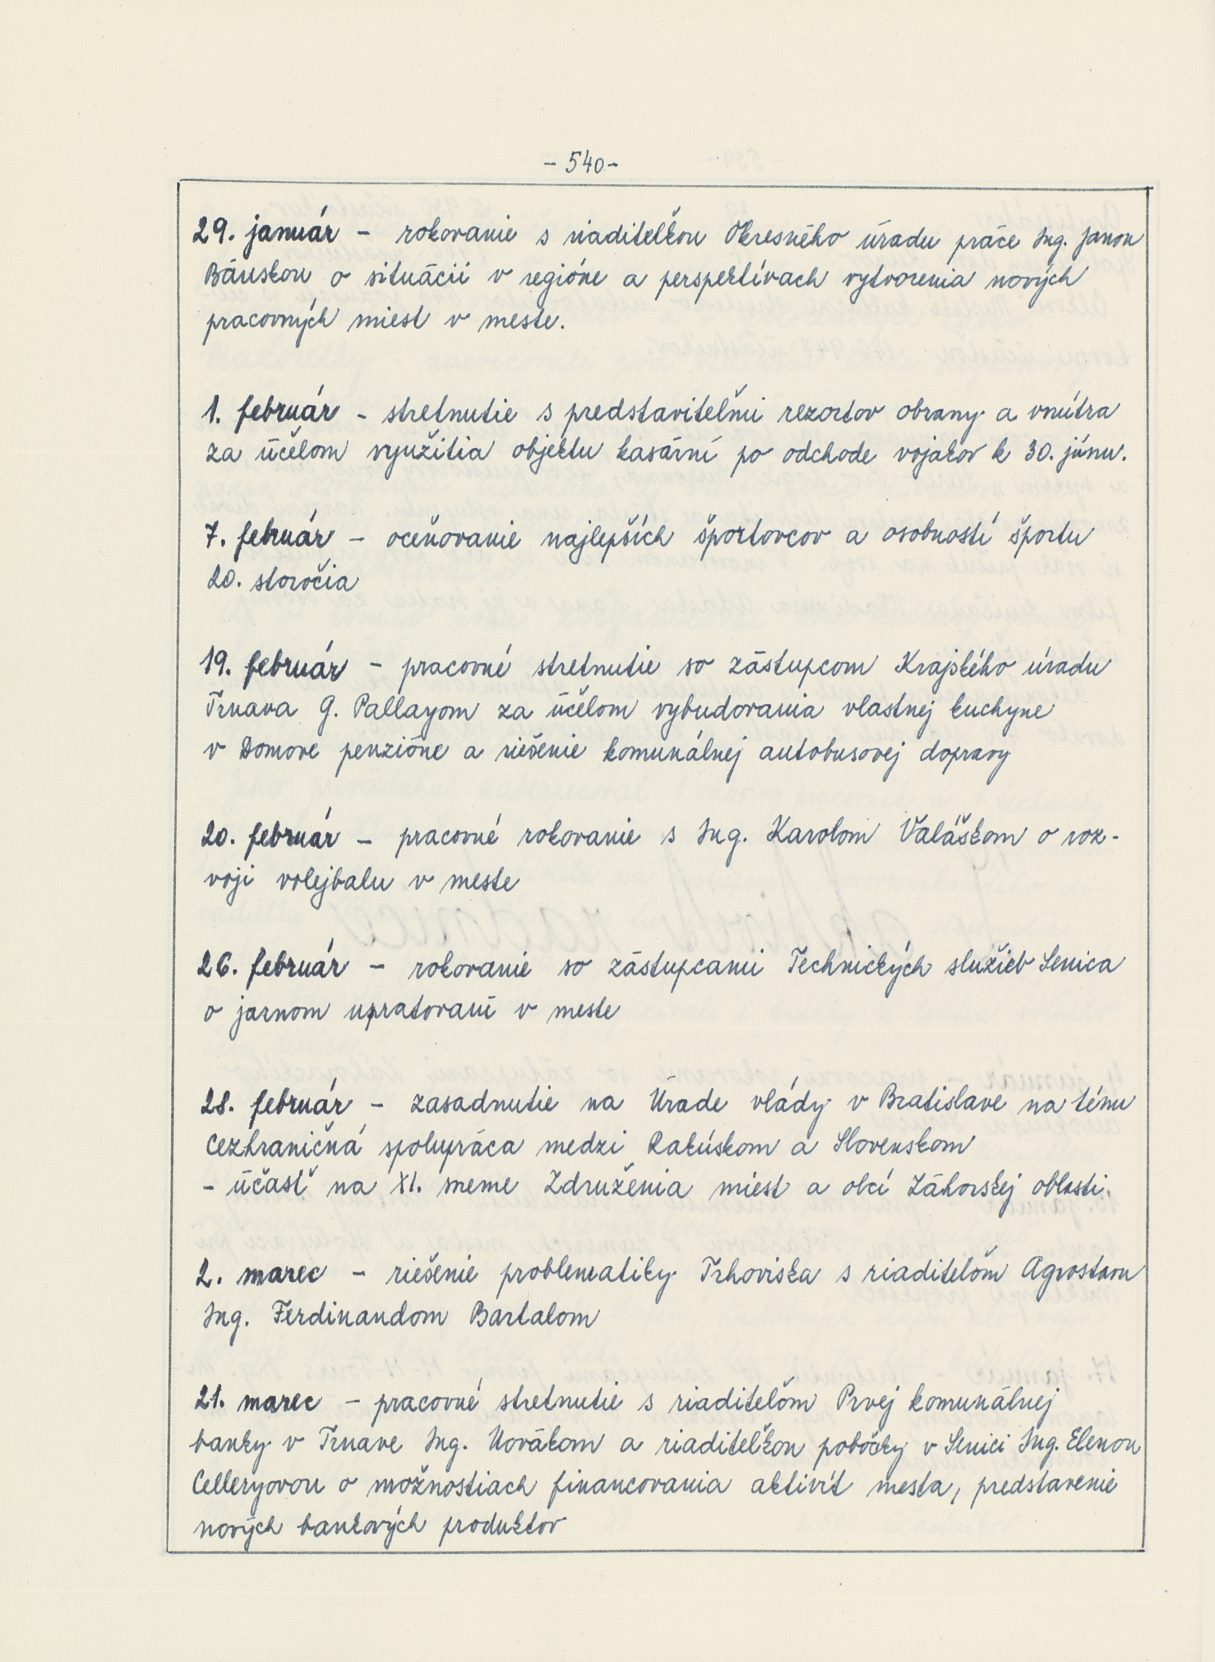 - 540 -
29. január - rokovanie s riaditeľkou Okresného úradu práce Ing. Janou
Bánskou o situácií v regióne a perspektívach vytvorenia nových
pracovných miest v meste.
1. február - stretnutie s predstaviteľmi rezortov obrany a vnútra
za účelom využitia objektu kasární po odchode vojakov k 30. júnu.
7. február - oceňovanie najlepších športovcov a osobností športu
20. storočia
19. február - pracovné stretnutie so zástupcom Krajského úradu
Trnava G. Pallayom za účelom vybudovania vlastnej kuchyne
v Domove penzióne a riešenie komunálnej autobusovej dopravy
20. február - pracovné rokovanie s Ing. Karolom Valáškom o roz-
voji volejbalu v meste
26. február - rokovanie so zástupcami Technických služieb Senica
o jarnom upratovaní v meste
28. február - zasadnutie na Úrade vlády v Bratislave na tému
Cezhraničná spolupráca medzi Rakúskom a Slovenskom
- účasť na XI. sneme Združenia miest a obcí Záhorskej oblasti.
2. marec - riešenie problematiky Trhoviska s riaditeľom Agrostavu
Ing. Ferdinandom Bartalom
21. marec - pracovné stretnutie s riaditeľom Prvej komunálnej
banky v Trnave Ing. Novákom a riaditeľkou pobočky v Senici Ing. Elenou
Celleryovou o možnostiach financovania aktivít mesta, predstavenie
nových bankových produktov